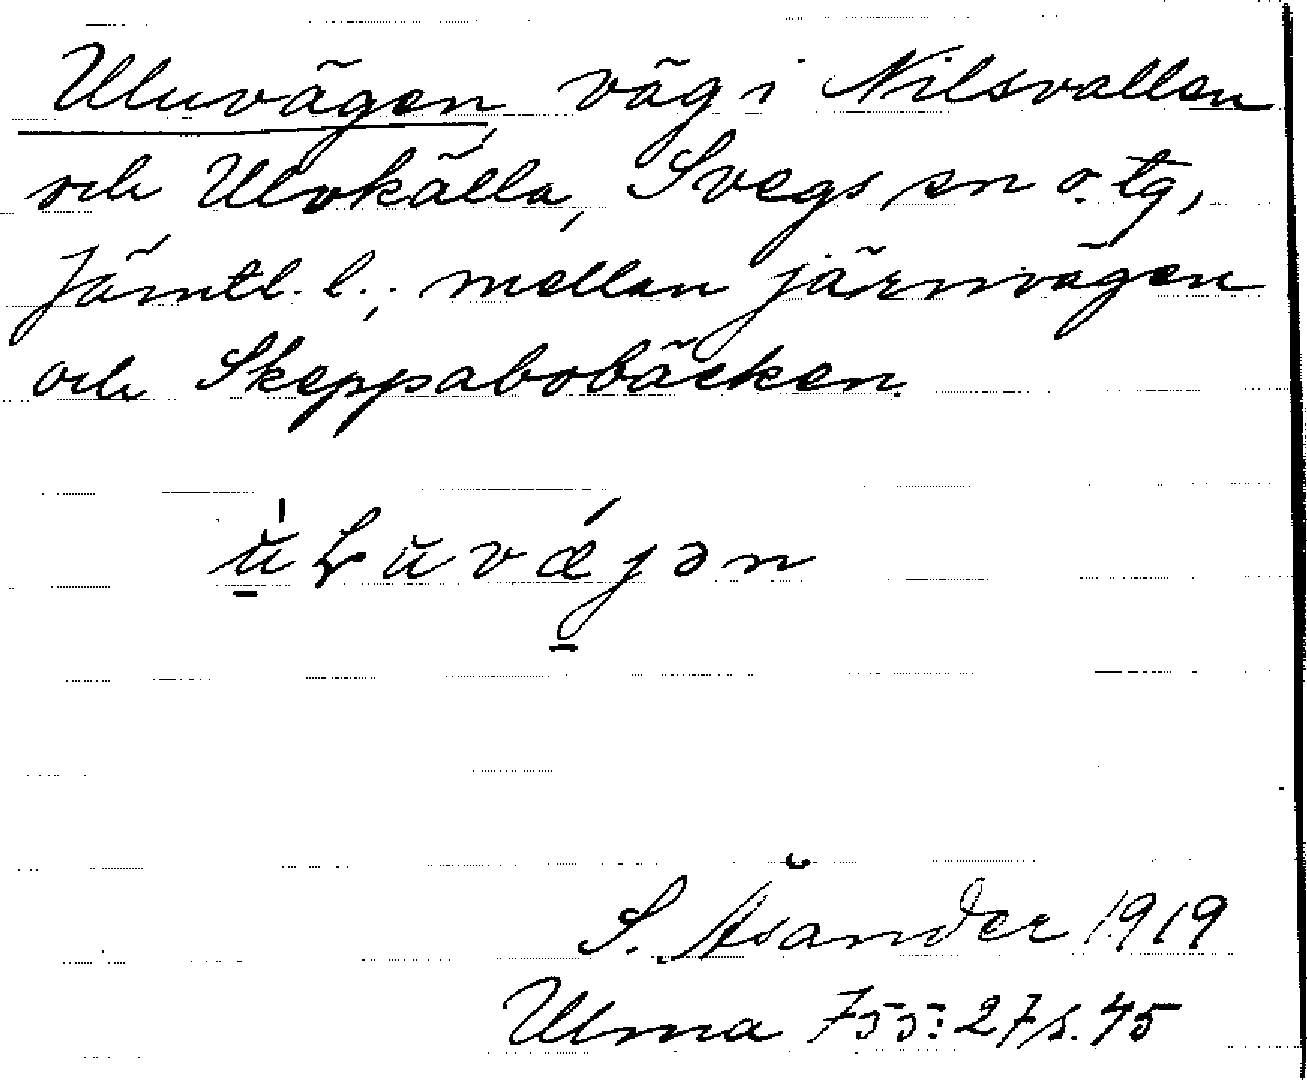 Uluvägen, väg i Nilsvallen
och Ulvkälla, Svegs sn o. tg,
Jämtl. l.; mellan järnvägen
och Skeppabobäcken.
S. Åsander 1919
Ulma 755:27 s. 45